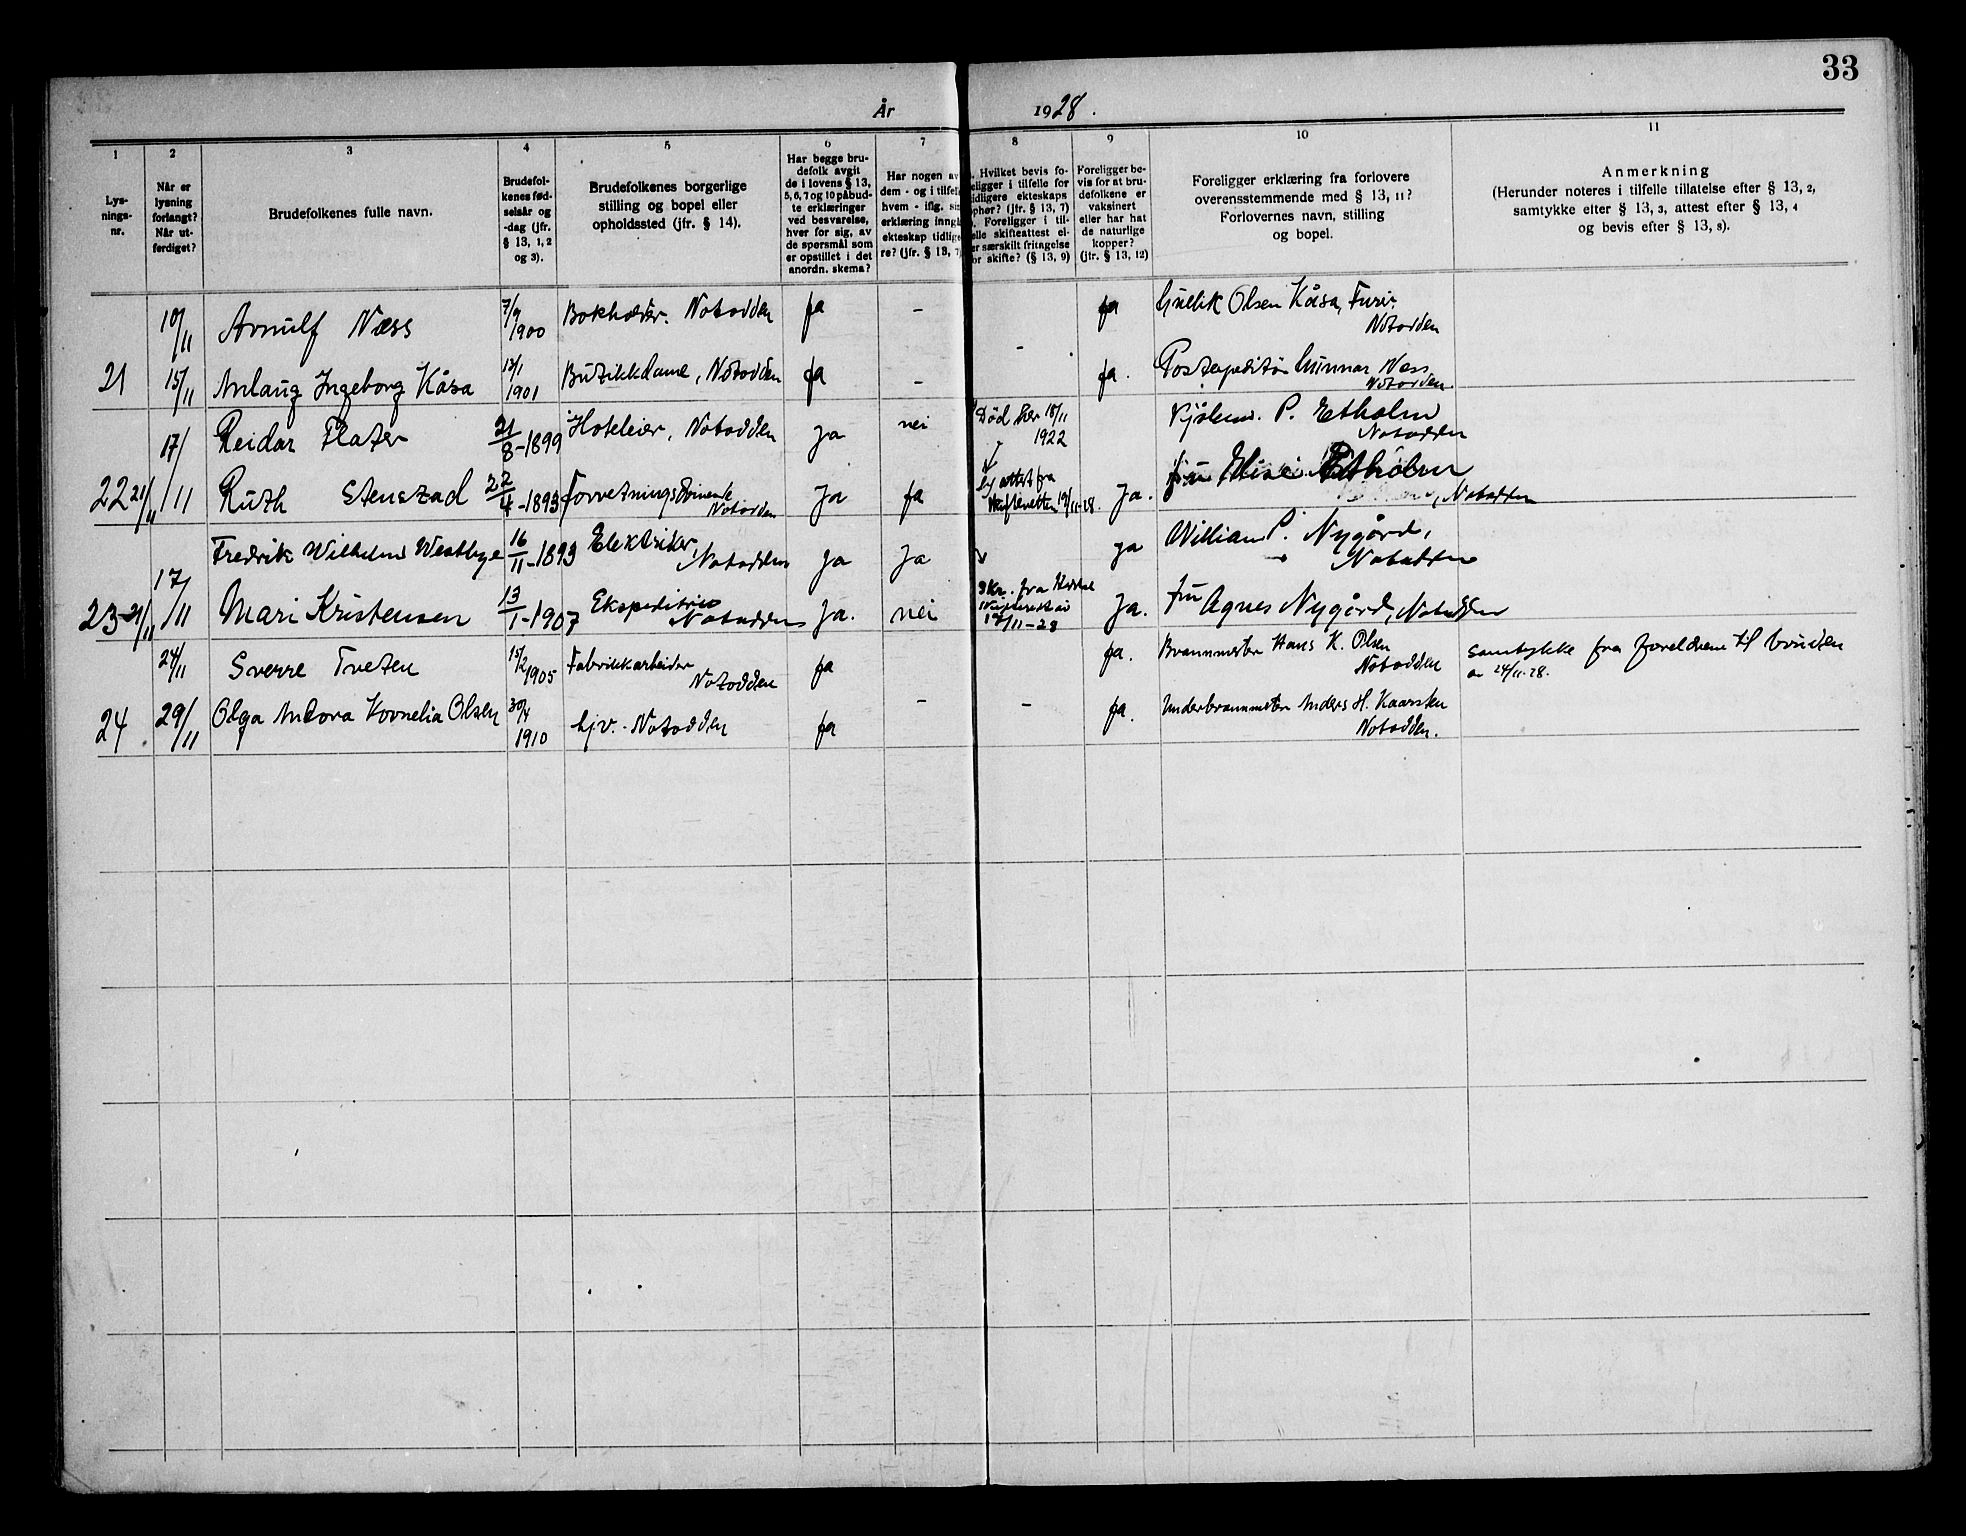 33
År 1928.
1 2 3 4 5 6 7 8 9 10 11
Lys-
nings-
nr.
Når er
lysning
forlangt?
Når ut-
ferdiget?
Brudefolkenes fulle navn.
Brudefol-
kenes fød-
selsår og
-dag (jfr.
§ 13, 1, 2
og 3).
Brudefolkenes borgerlige
stilling og bopel eller
opholdssted (jfr. § 14).
Har begge bru-
defolk avgit
de i lovens § 13,
5, 6, 7 og 10 påbud-
te erklæringer
ved besvarelse,
hver for sig, av
de spørsmål som
er opstillet i det
anordn. skema?
Har nogen av
dem - og i tilfel
hvem - iflg. si
erklæring inngå
ekteskap tidlige
re? (jfr. § 13, 7)
Hvilket bevis fo-
eligger i tilfelle for
idligere ekteskaps
ophør? (jfr. § 13, 7)
Foreligger i til-
elle skifteattest el-
er særskilt fritagelse
or skifte? (§ 13, 9)
Foreligger be-
vis for at bru-
defolkene er
vaksinert
eller har hat
de naturlige
kopper?
(jfr. § 13, 12)
Foreligger erklæring fra forlovere
overensstemmende med § 13, 11?
Forlovernes navn, stilling
og bopel.
Anmerkning
(Herunder noteres i tilfelle tillatelse efter § 13, 2,
samtykke efter § 13, 3, attest efter § 13, 4
og bevis efter § 13, 8).
10/11 Arnulf Næss 7/9 1900 Bokholder. Notodden ja - ja Gullik Olsen Kåsa,
Notodden
21 15/11 Anlaug Ingeborg Kåsa 13/1 1901 Butikkdame, Notodden ja - - ja. Postexpeditør Gunnar Næss
Notodden
17/11 Reidar Flater 21/8-1899 Hoteleier, Notodden ja nei Død her 18/11 1922 P. Etholm
Notodden
22 21/11 Ruth Stenstad 22/4-1893 Forretningsdrivende Notodden ja ja attest fra skifteretten 19/11-28. ja. fru Elise Etholm
, Notodden
Fredrik Wilhelm Westbye 16/11-1893 Elektriker, Notodden ja ja ja William P. Nygård,
Notodden
23 21/11 17/11 Mari Kristensen 13/1-1907 Ekspeditrise Notodden ja. nei fra 19/11-28 ja. fru Agnes Nygård, Notodden
24/11 Sverre Tveten 15/2 1905 Fabrikkarbeider Notodden ja ja. Brannmester Hans K. Olsen
Notodden samtykke fra foreldrene til bruden
av 24/11-28.
24 29/11 Olga Andora Kornelia Olsen 30/4 1910 hjv. Notodden ja - - ja. Underbrannmester Anders H. Kaarsten
Notodden.